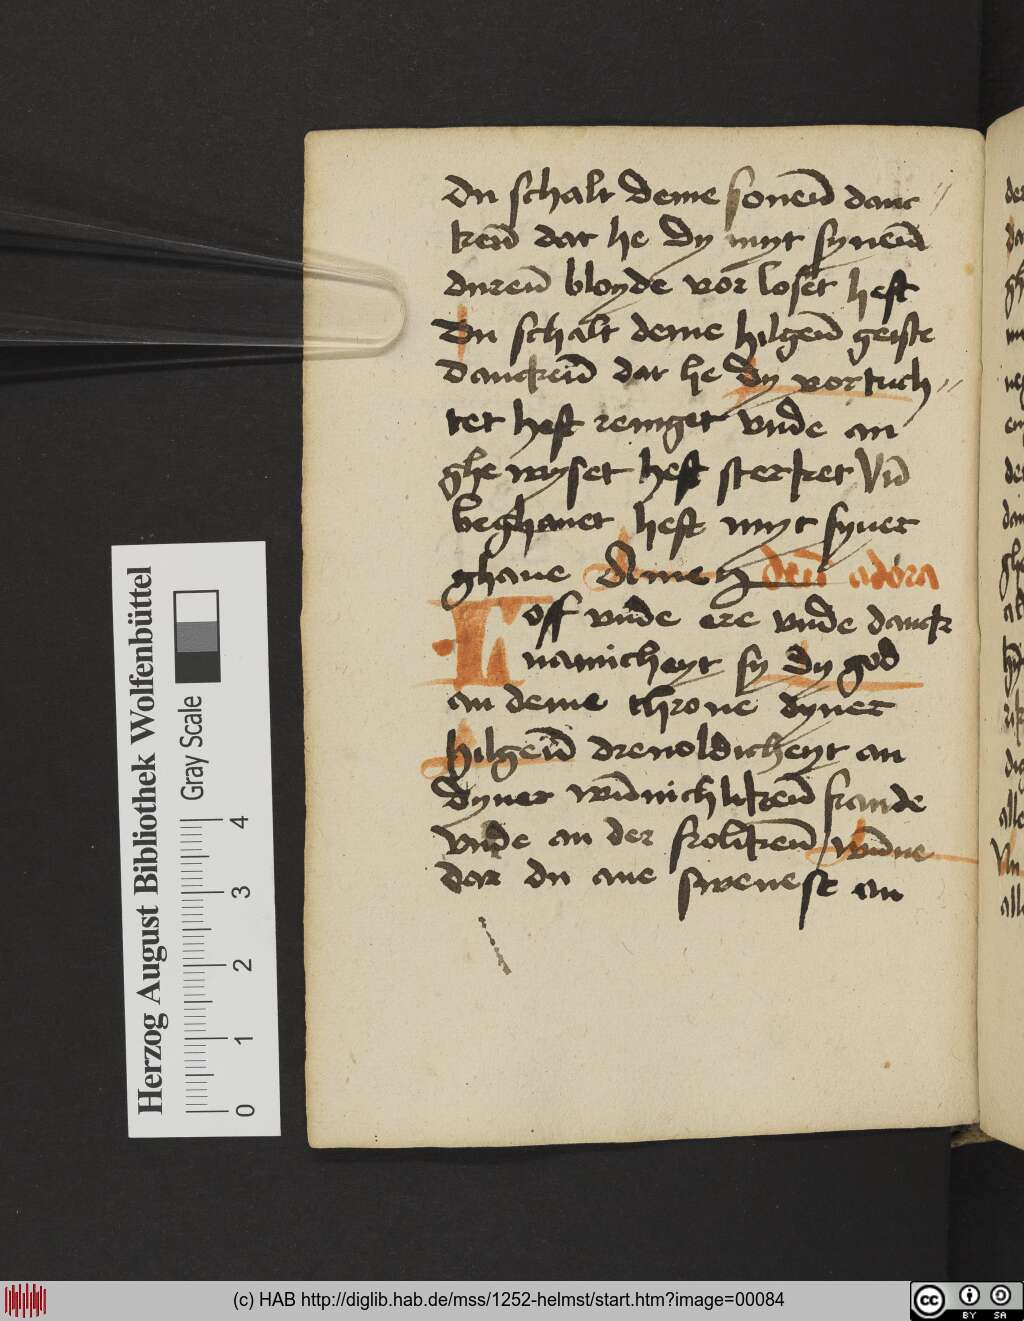 du schalt deme sonen̄ danc〃
ken̄ dat he dy myt synen̄
duren̄ bloyde vor loset heft
Du schalt deme hilgen̄ geiste
dancken̄ dat he dy vortuch〃
tet heft reniget vnde an
ghe wyset heft sterket Vn̄
beghauet heft myt syner
ghaue Amen den̄ adora
Loff vnde ere vnde danck
namicheyt sy dy god
an deme throne dyner
hilgen̄ dreuoldicheyt an
dyner wūnichliken̄ fraude
vnde an der froliken̄ wūne
dar du ane sweuest an
Herzog August Bibliothek Wolfenbüttel
Gray Scale
0 1 2 3 4
(c) HAB http://diglib.hab.de/mss/1252-helmst/start.htm?image=00084
cc BY SA